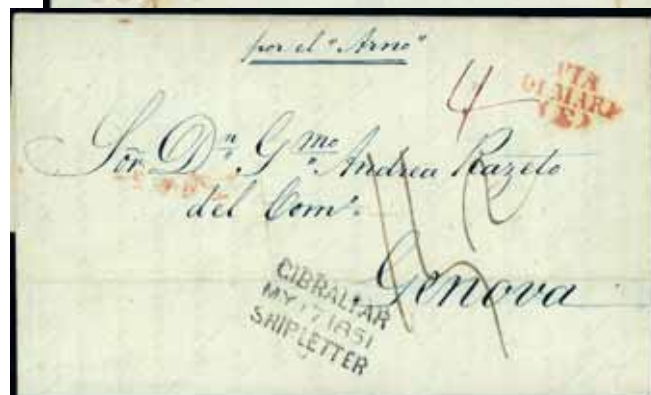 por el "Arno"
4
PTA
DI MARE
(E)
Sōr Dⁿ. G.ᵐᵒ Andrea Razeto
del Comº.
Genova
GIBRALTAR
MY 17 1851
SHIP LETTER